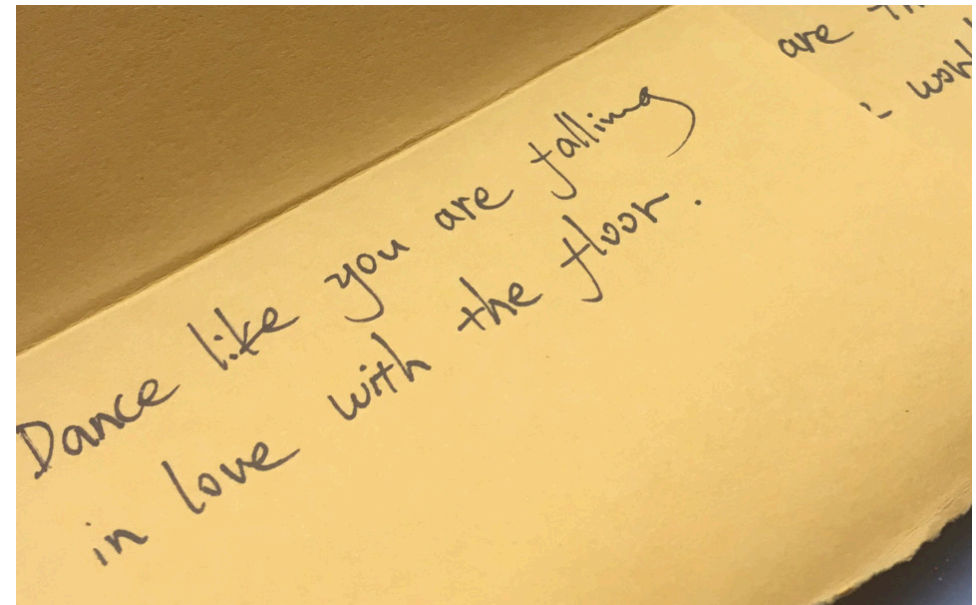 Dance like you are falling
in love with the floor.
are